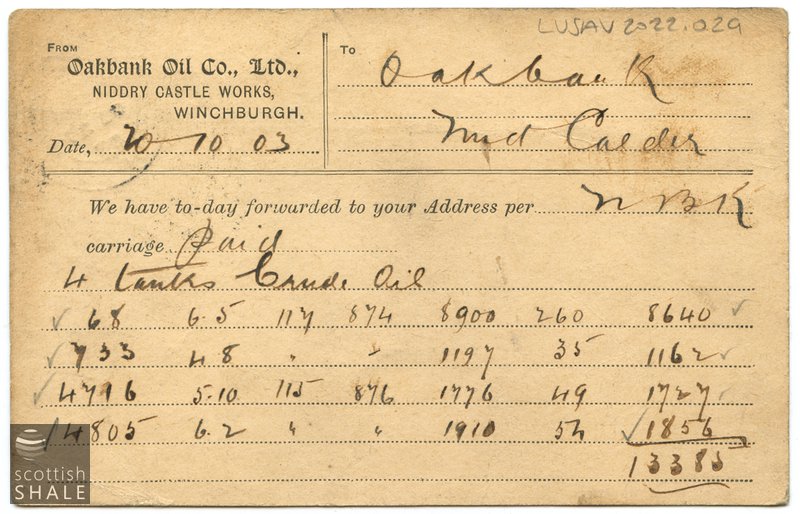 LUSAV2022.029
FROM
Oakbank Oil Co., Ltd.,
NIDDRY CASTLE WORKS,
WINCHBURGH.
Date, 20 10 03
To
Oakbank
Mid Calder
We have to-day forwarded to your Address per N B R
carriage Paid
4 tanks Crude Oil
68 6.5 117 874 8900 260 8640
733 4 8 " " 1197 35 1162
4716 5.10 115 876 1776 49 1727
4805 6.2 " " 1910 54 1856
13385
scottish
SHALE